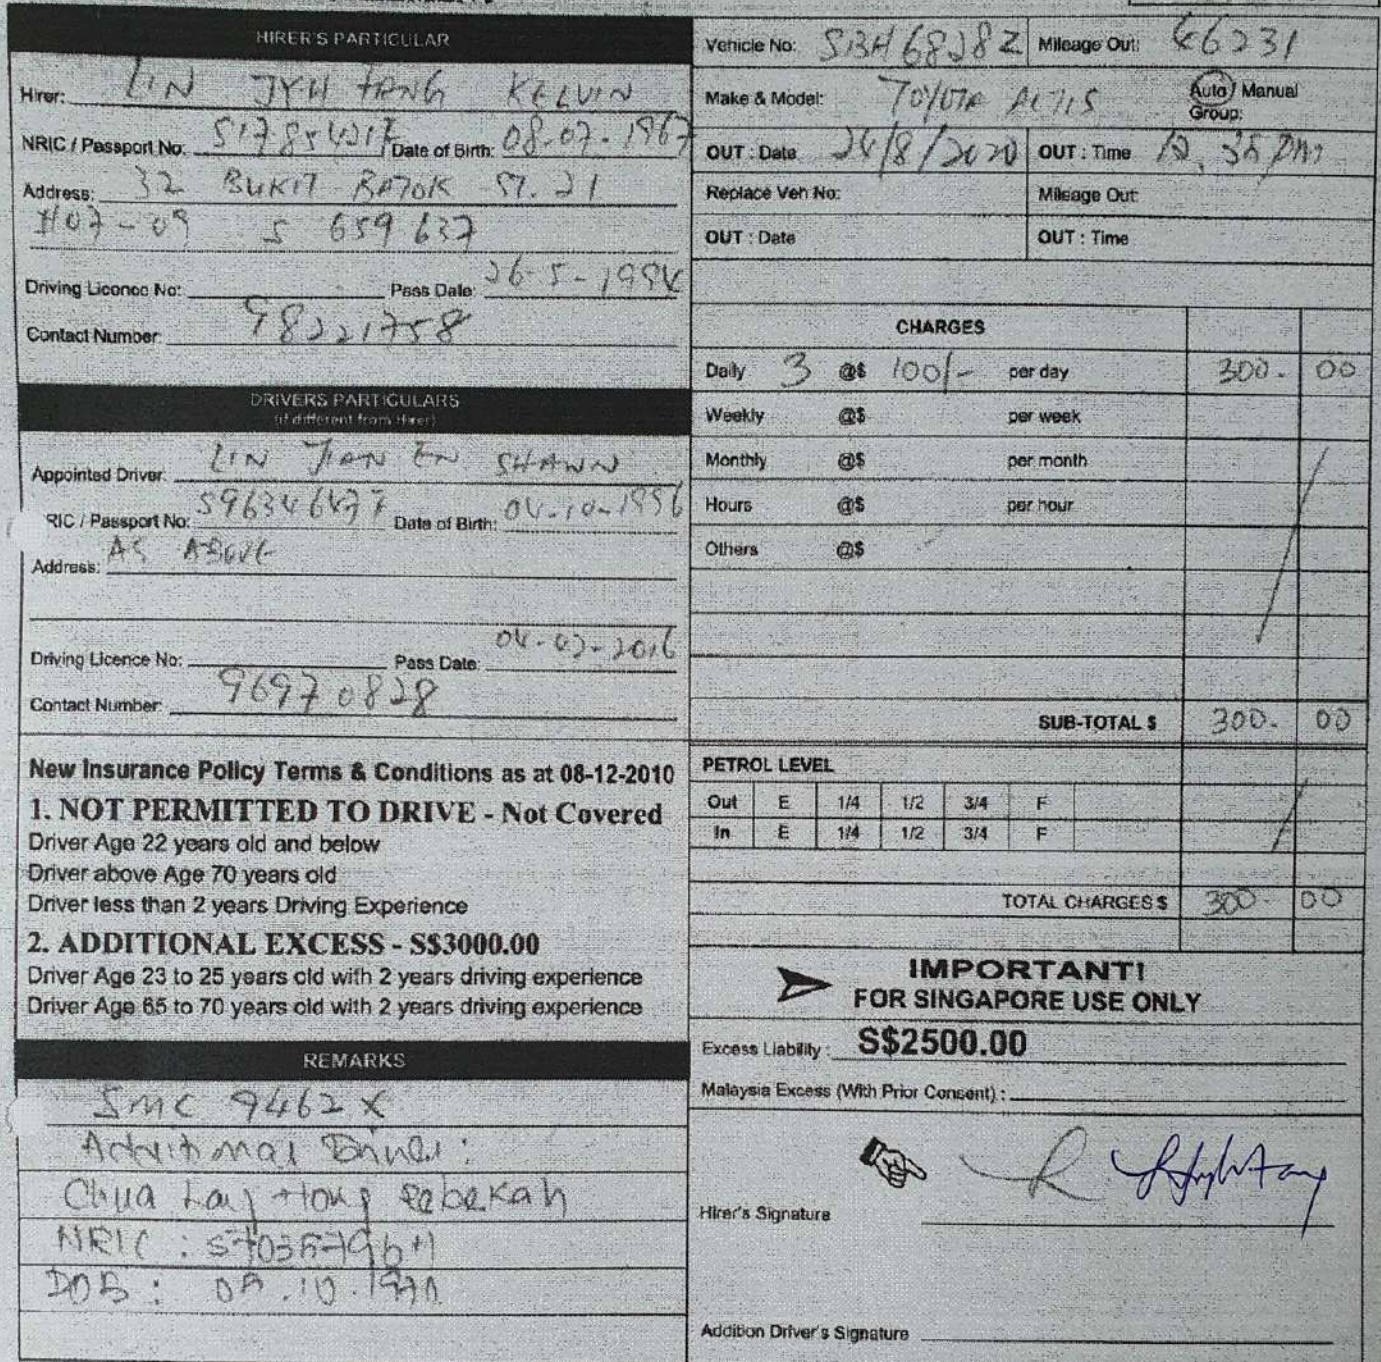 HIRER'S PARTICULAR
Hirer: LIN JYH FANG KELVIN
NRIC / Passport No: Date of Birth: 08-07-1967
Address: 32 BUKIT BATOK ST. 21
#07-09 S 659637
Driving Licence No: Pass Date: 26-5-1994
Contact Number: 98221758
DRIVERS PARTICULARS
(if different from Hirer)
Appointed Driver: LIN JIAN EN SHAWN
RIC / Passport No: Date of Birth: 04-10-1996
Address: AS ABOVE
Driving Licence No: Pass Date: 04-02-2016
Contact Number: 96970828
New Insurance Policy Terms & Conditions as at 08-12-2010
1. NOT PERMITTED TO DRIVE - Not Covered
Driver Age 22 years old and below
Driver above Age 70 years old
Driver less than 2 years Driving Experience
2. ADDITIONAL EXCESS - S$3000.00
Driver Age 23 to 25 years old with 2 years driving experience
Driver Age 65 to 70 years old with 2 years driving experience
REMARKS
SMC 9462X
Additional Driver:
Chua Lay Hong Rebekah
NRIC :
DOB : .10.1970
Vehicle No: SBH6828Z Mileage Out: 66231
Make & Model: TOYOTA ALTIS Auto / Manual
Group:
OUT : Date 24/8/2020 OUT : Time 12.35 PM
Replace Veh No: Mileage Out:
OUT : Date OUT : Time
CHARGES
Daily 3 @$ 100/- per day 300. 00
Weekly @$ per week
Monthly @$ per month
Hours @$ per hour
Others @$
SUB-TOTAL $ 300. 00
PETROL LEVEL
Out E 1/4 1/2 3/4 F
In E 1/4 1/2 3/4 F
TOTAL CHARGES $ 300. 00
IMPORTANT!
FOR SINGAPORE USE ONLY
Excess Liability : S$2500.00
Malaysia Excess (With Prior Consent) :
Hirer's Signature
Addition Driver's Signature